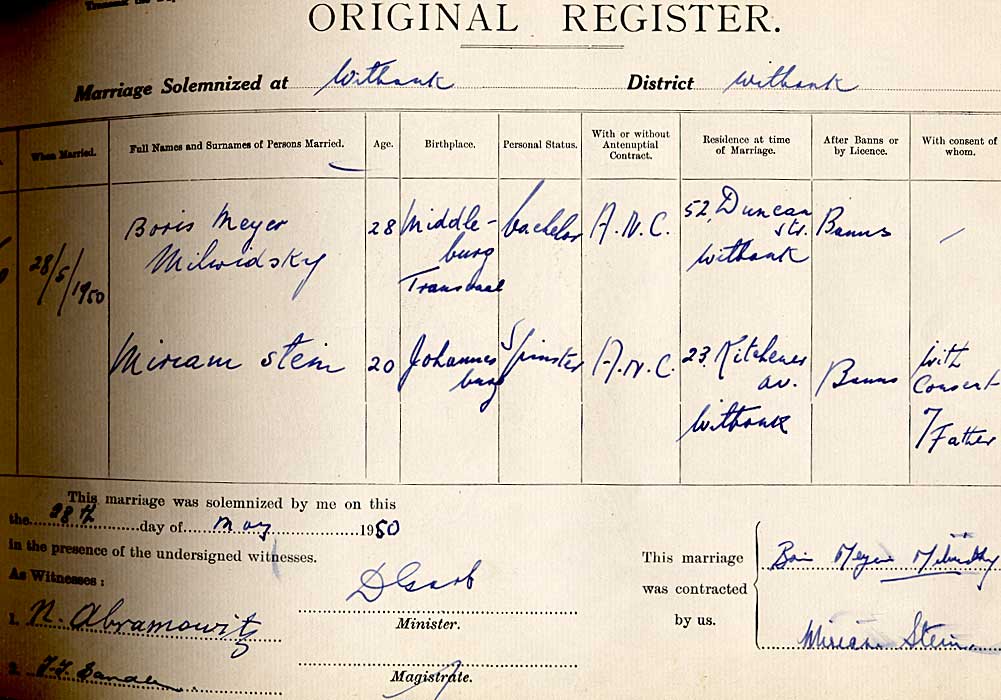 ORIGINAL REGISTER.
Marriage Solemnized at Witbank District Witbank
When Married. Full Names and Surnames of Persons Married. Age. Birthplace. Personal Status. With or without Antenuptial Contract. Residence at time of Marriage. After Banns or by Licence. With consent of whom.
28/5/1950
Boris Meyer Milwidsky 28 Middle-burg Transvaal bachelor A.N.C. 52, Duncan str. Witbank Banns
Miriam Stein 20 Johannesburg Spinster A.N.C. 23 Kitchener av. Witbank Banns With Consent of Father
This marriage was solemnized by me on this
the 28th day of May 1950
in the presence of the undersigned witnesses.
As Witnesses:
1. N. Abramowitz
Minister.
2.
Magistrate.
This marriage was contracted by us.
Boris Meyer Milwidsky
Miriam Stein